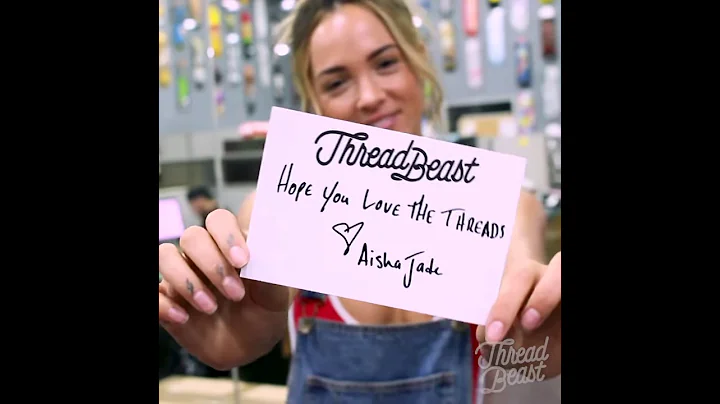 ThreadBeast
Hope You Love The Threads
Aisha Jade
Thread
Beast